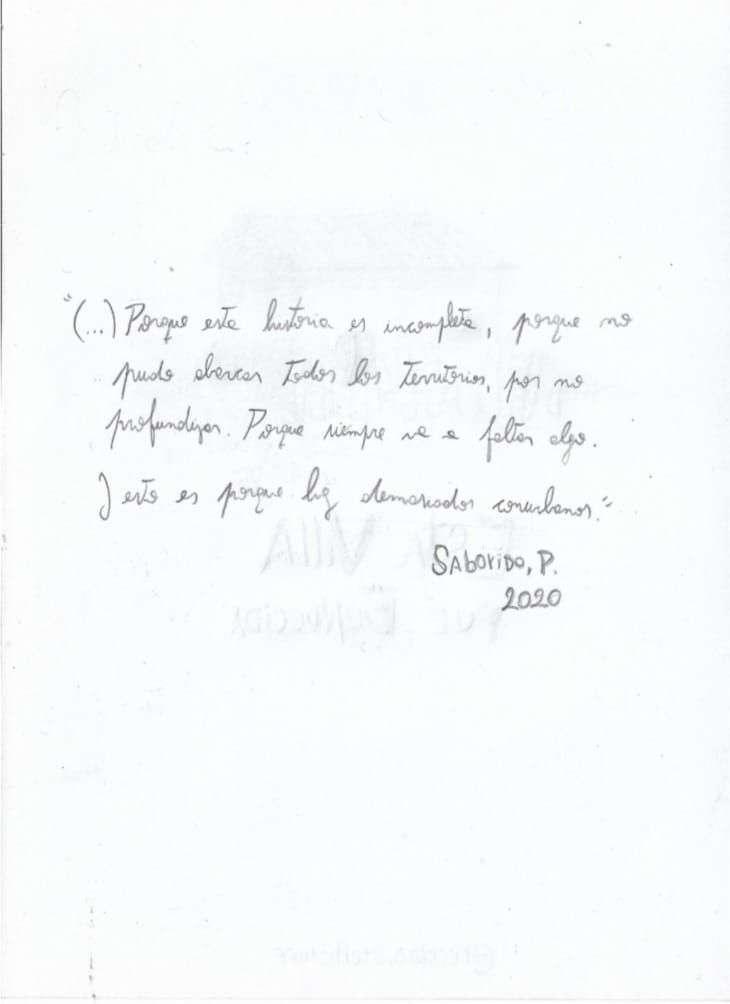 "(...) Porque esta historia es incompleta, porque no
pudo abarcar todos los territorios, por no
profundizar. Porque siempre va a faltar algo.
Y esto es porque hay demasiados conurbanos."
SAborido, P.
2020